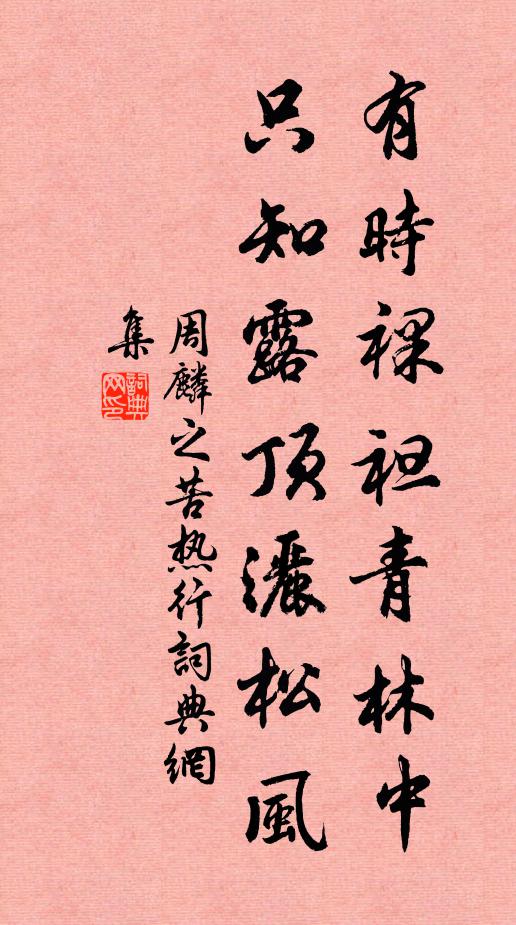 有時裸袒青林中
只知露頂灑松風
周麟之苦热行詞典網
集
詞典
网印